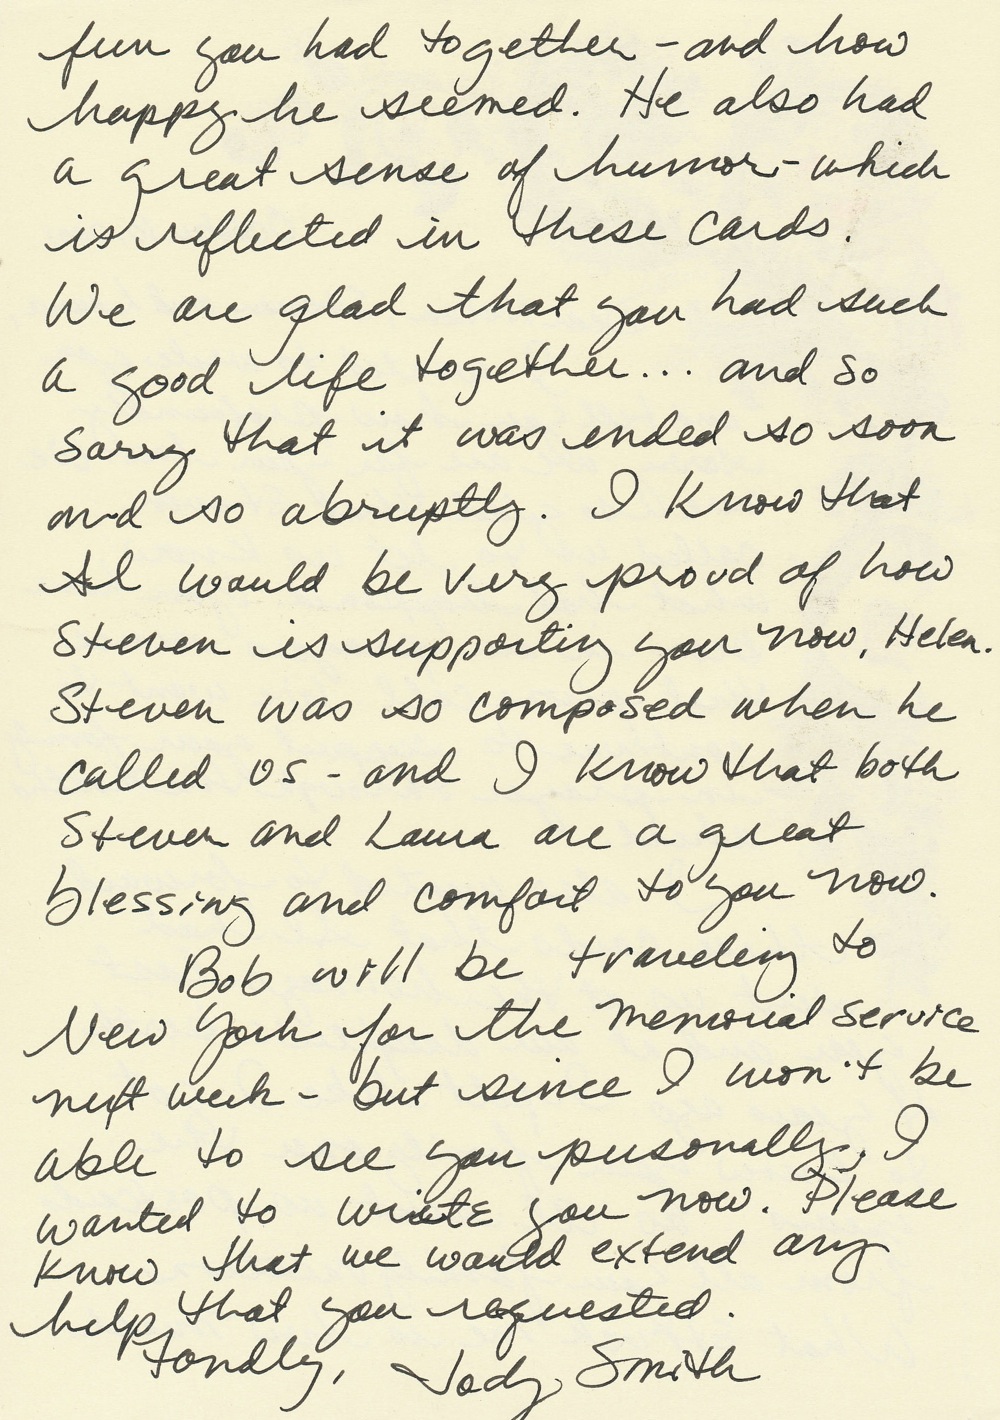 fun you had together - and how
happy he seemed. He also had
a great sense of humor - which
is reflected in these cards.
We are glad that you had such
a good life together... and so
sorry that it was ended so soon
and so abruptly. I know that
Al would be very proud of how
Steven is supporting you now, Helen.
Steven was so composed when he
called us - and I know that both
Steven and Laura are a great
blessing and comfort to you now.
Bob will be traveling to
New York for the memorial service
next week - but since I won't be
able to see you personally, I
wanted to write you now. Please
know that we would extend any
help that you requested.
Fondly, Jody Smith